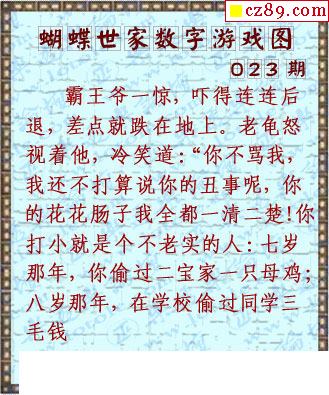 cz89.com
蝴蝶世家数字游戏图
023 期
霸王爷一惊，吓得连连后
退，差点就跌在地上。老龟怒
视着他，冷笑道：“你不骂我，
我还不打算说你的丑事呢，你
的花花肠子我全都一清二楚!你
打小就是个不老实的人：七岁
那年，你偷过二宝家一只母鸡；
八岁那年，在学校偷过同学三
毛钱